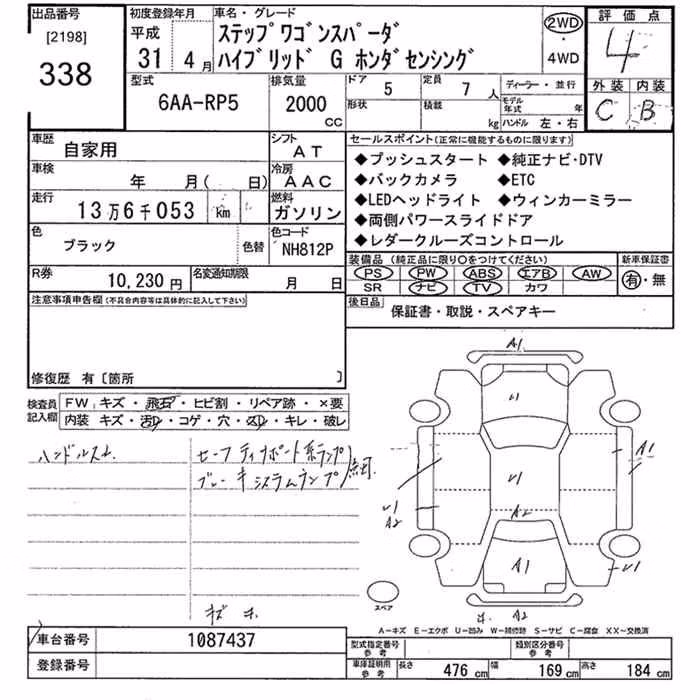 出品番号 初度登録年月 車名・グレード 評価点
[2198] 平成 ステップワゴンスパーダ 2WD
338 31 4月 ハイブリッド G ホンダセンシング ・4WD 4
型式 排気量 ドア 5 定員 7 人 ディーラー・並行 外装 内装
6AA-RP5 2000 cc 形状 積載 kg モデル年式 年 C B
ハンドル 左・右
車歴 自家用 シフト AT セールスポイント(正常に機能するものに限ります)
車検 年 月( 日) 冷房 AAC ◆プッシュスタート ◆純正ナビ・DTV
走行 13万6千053 km 燃料 ガソリン ◆バックカメラ ◆ETC
◆LEDヘッドライト ◆ウィンカーミラー
色 ブラック 色替 色コード NH812P ◆両側パワースライドドア
◆レダークルーズコントロール
R券 10,230円 名変通知期限 月 日 装備品(純正品に限り○をつけてください) 新車保証書
PS PW ABS エアB AW 有・無
SR ナビ TV カワ
注意事項申告欄(不具合内容等は具体的に記入して下さい) 後日品 保証書・取説・スペアキー
修復歴 有〔箇所 〕
検査員記入欄 FW:キズ・飛石・ヒビ割・リペア跡・×要
内装 キズ・汚れ・コゲ・穴・スレ・キレ・破レ
A1
U1
ハンドルスレ セーフティサポート系ランプ A1
ブレーキシステムランプ 点灯 U1
U1
A2 A2
A1 U1
スペア
A2
A-キズ E-エクボ U-凹み W-補修跡 S-サビ C-腐食 XX-交換済
車台番号 1087437 型式指定番号 参考 類別区分番号 参考
登録番号 車庫証明用 参考 長さ 476 cm 幅 169 cm 高さ 184 cm